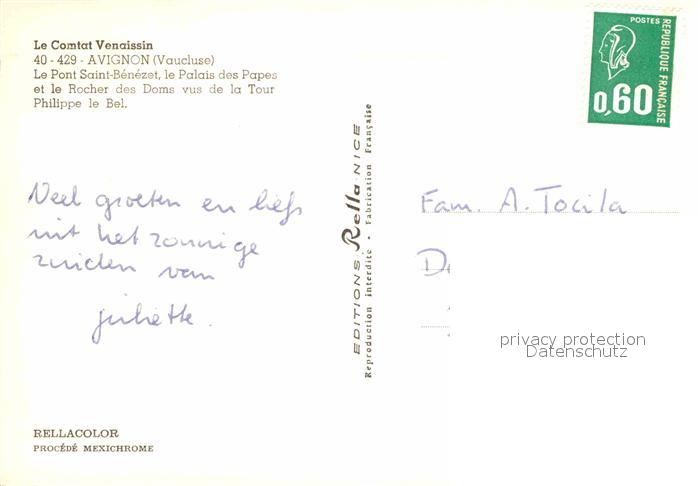 Le Comtat Venaissin
40 - 429 - AVIGNON (Vaucluse)
Le Pont Saint-Bénézet, le Palais des Papes
et le Rocher des Doms vus de la Tour
Philippe le Bel.
POSTES
REPUBLIQUE FRANÇAISE
0,60
Veel groeten en liefs
uit het zonnige
zuiden van
juliette.
EDITIONS Rella NICE
Reproduction interdite • Fabrication Française
Fam. A. Tocila
D
privacy protection
Datenschutz
RELLACOLOR
PROCÉDÉ MEXICHROME